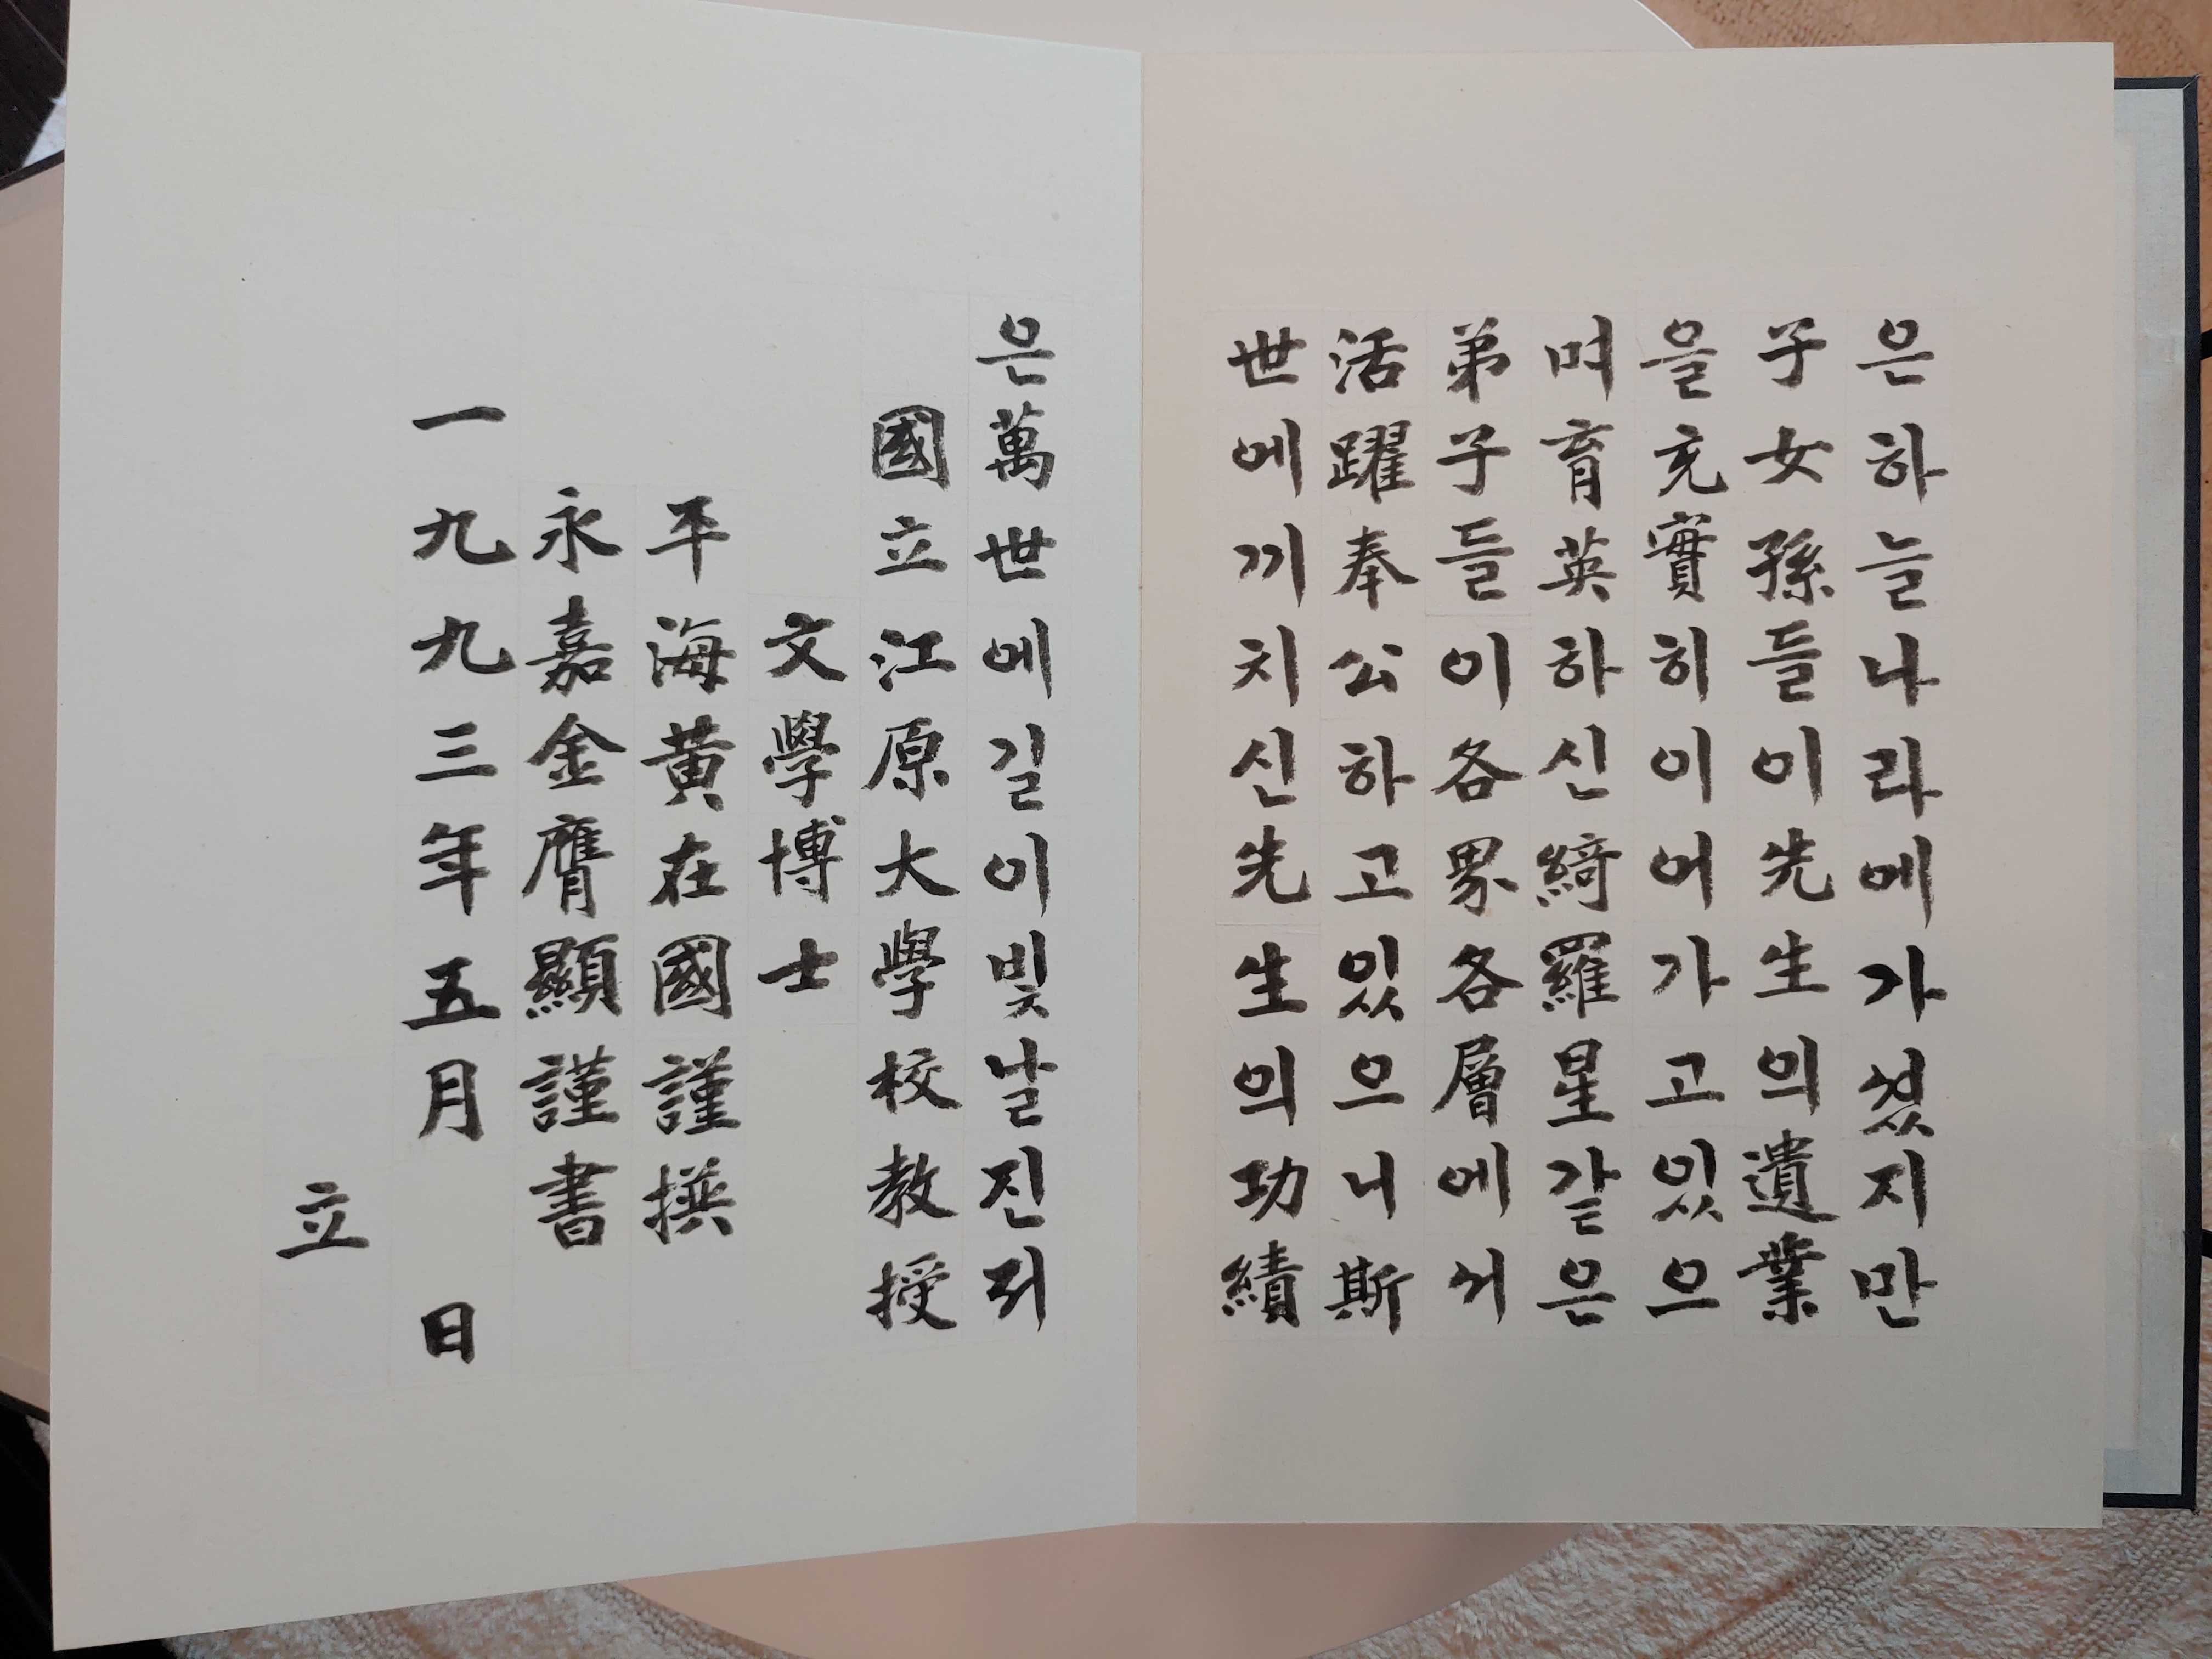 은하늘나라에가셨지만
子女孫들이先生의遺業
을充實히이어가고있으
며育英하신綺羅星같은
弟子들이各界各層에서
活躍奉公하고있으니斯
世에끼치신先生의功績
은萬世에길이빛날진저
國立江原大學校敎授
文學博士
平海黃在國謹撰
永嘉金膺顯謹書
一九九三年五月 日
立